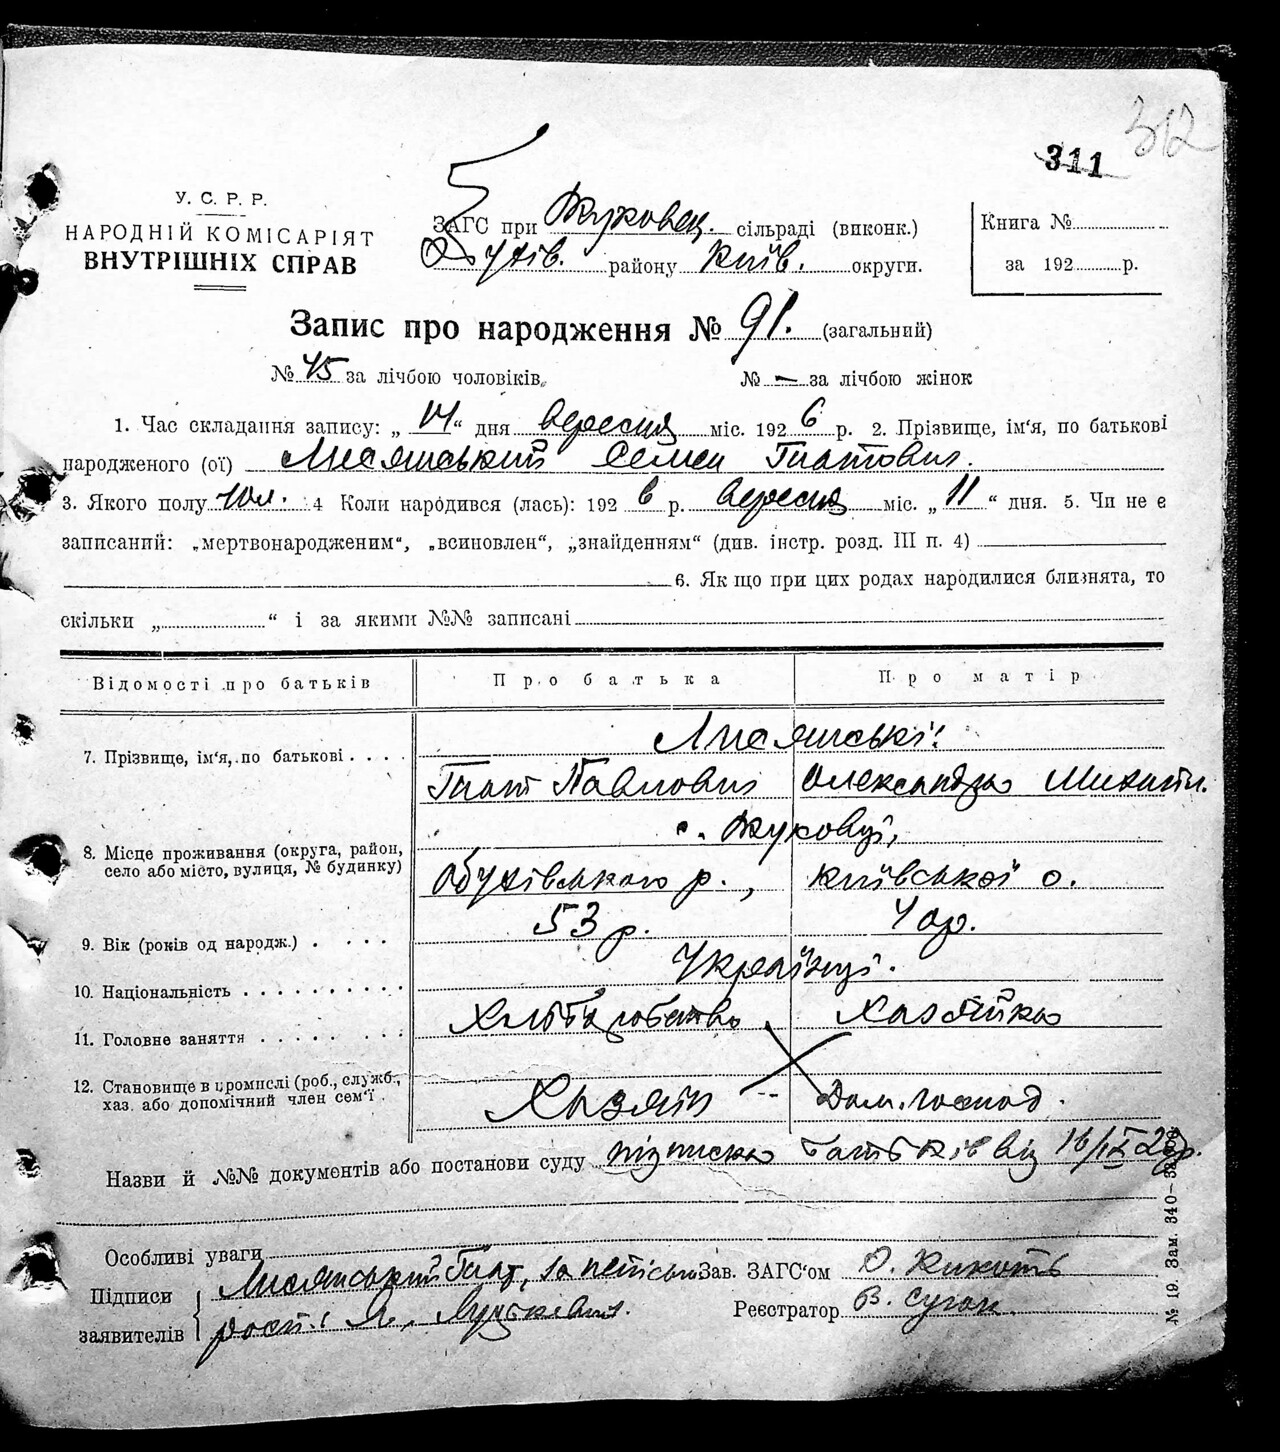 312
311
У. С. Р. Р.
НАРОДНІЙ КОМІСАРІЯТ
ВНУТРІШНІХ СПРАВ
ЗАГС при Жуковец. сільраді (виконк.)
Обухів. району Київ. округи.
Книга №
за 192 р.
Запис про народження № 91. (загальний)
№ 45 за лічбою чоловіків. № – за лічбою жінок
1. Час складання запису: „ 14 “ дня вересня міс. 192 6 р. 2. Прізвище, ім‘я, по батькові
народженого (ої) Лисянський Семен Гнатович.
3. Якого полу чол. 4 Коли народився (лась): 192 6 р. вересня міс. „ 11 “ дня. 5. Чи не є
записаний: „мертвонародженим“, „всиновлен“, „знайденням“ (див. інстр. розд. III п. 4)
6. Як що при цих родах народилися близнята, то
скільки „ “ і за якими №№ записані
Відомості про батьків Про батька Про матір
7. Прізвище, ім‘я, по батькові Лисянські:
Гнат Павлович Олександра Михайл.
с. Жуковці,
8. Місце проживання (округа, район,
село або місто, вулиця, № будинку) Обухівського р., Київської о.
9. Вік (років од народж.) 53 р. 40р.
10. Національність Українці.
11. Головне заняття Хліборобство Хазяйка
12. Становище в промислі (роб., службʼ,
хаз. або допомічний член сем‘ї Хазяїн Дом. господ.
Назви й №№ документів або постанови суду підписка батьків від
Особливі уваги
Підписи Лисянський Гнат, за Зав. ЗАГС‘ом О.
заявителів Реєстратор В.
№ 19. Зам. 340—